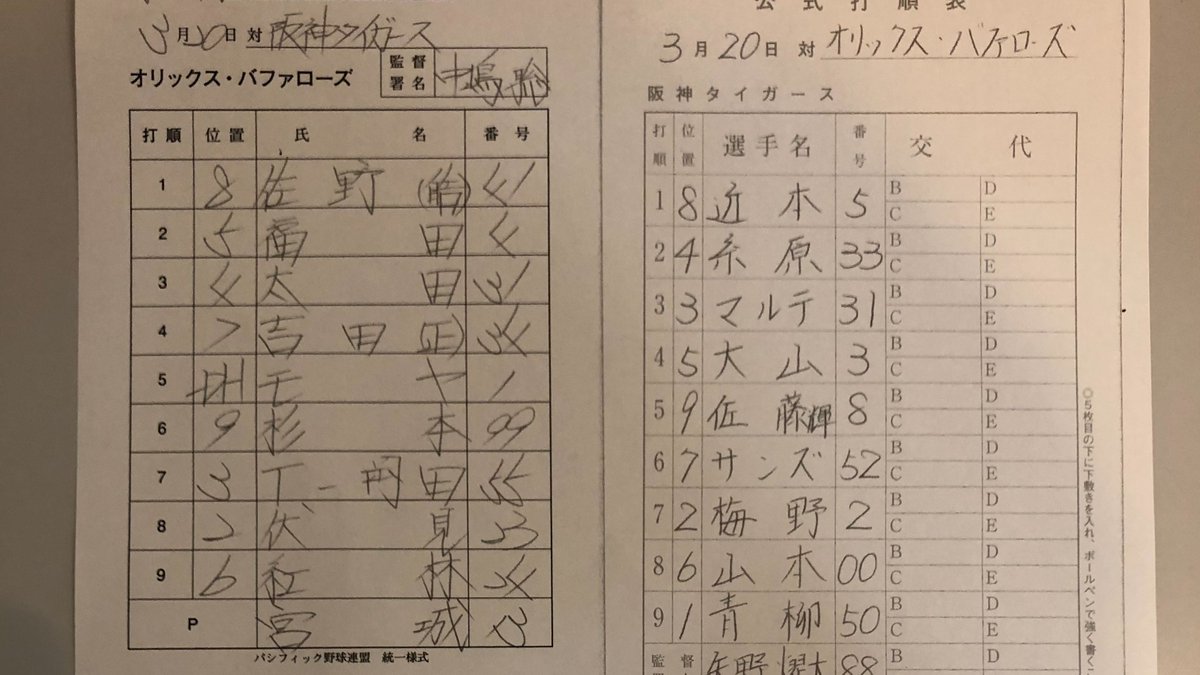 3月20日 対 阪神タイガース
オリックス・バファローズ 監督署名 中嶋聡
打順 位置 氏名 番号
1 8 佐野(皓) 41
2 5 福田 4
3 4 太田 31
4 7 吉田(正) 34
5 DH モヤ 1
6 9 杉本 99
7 3 T-岡田 55
8 2 伏見 23
9 6 紅林 24
P 宮城 13
パシフィック野球連盟 統一様式
公式打順表
3月20日 対 オリックス・バファローズ
阪神タイガース
打順 位置 選手名 番号 交代
1 8 近本 5 B D
C E
2 4 糸原 33 B D
C E
3 3 マルテ 31 B D
C E
4 5 大山 3 B D
C E
5 9 佐藤輝 8 B D
C E
6 7 サンズ 52 B D
C E
7 2 梅野 2 B D
C E
8 6 山本 00 B D
C E
9 1 青柳 50 B D
C E
監督 矢野燿大 88 B D
◎5枚目の下に下敷きを入れ、ボールペンで強く書くこ